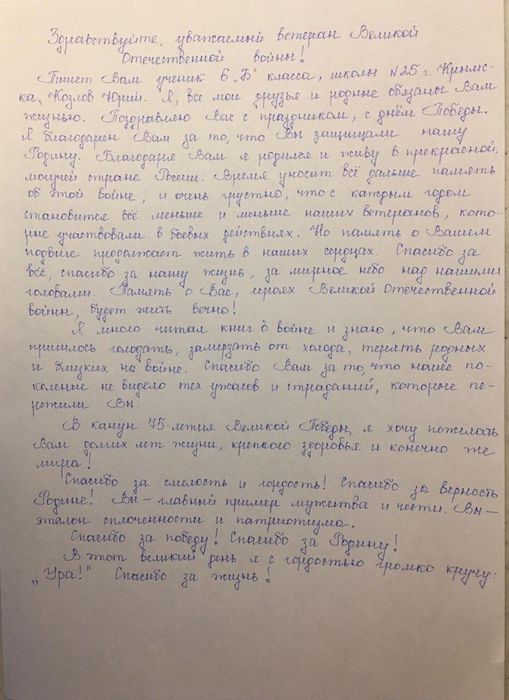 Здравствуйте, уважаемый ветеран Великой
Отечественной войны!
Пишет Вам ученик 6 „Б" класса, школы №25 г. Крымс-
ка, Козлов Юрий. Я, все мои друзья и родные обязаны Вам
жизнью. Поздравляю Вас с праздником, с днём Победы.
Я благодарен Вам за то, что Вы защищали нашу
Родину. Благодаря Вам я родился и живу в прекрасной,
могучей стране России. Время уносит всё дальше память
об этой войне, и очень грустно, что с каждым годом
становится всё меньше и меньше наших ветеранов, кото-
рые участвовали в боевых действиях. Но память о Вашем
подвиге продолжает жить в наших сердцах. Спасибо за
всё, спасибо за нашу жизнь, за мирное небо над нашими
головами. Память о Вас, героях Великой Отечественной
войны, будет жить вечно!
Я много читал книг о войне и знаю, что Вам
пришлось голодать, замерзать от холода, терять родных
и близких на войне. Спасибо Вам за то, что наше по-
коление не видело тех ужасов и страданий, которые пе-
режили Вы.
В канун 75-летия Великой Победы, я хочу пожелать
Вам долгих лет жизни, крепкого здоровья и конечно же
мира!
Спасибо за смелость и гордость! Спасибо за верность
Родине! Вы – главный пример мужества и чести. Вы –
эталон сплоченности и патриотизма.
Спасибо за победу! Спасибо за Родину!
В этот великий день я с гордостью громко кричу:
„Ура!" Спасибо за жизнь!